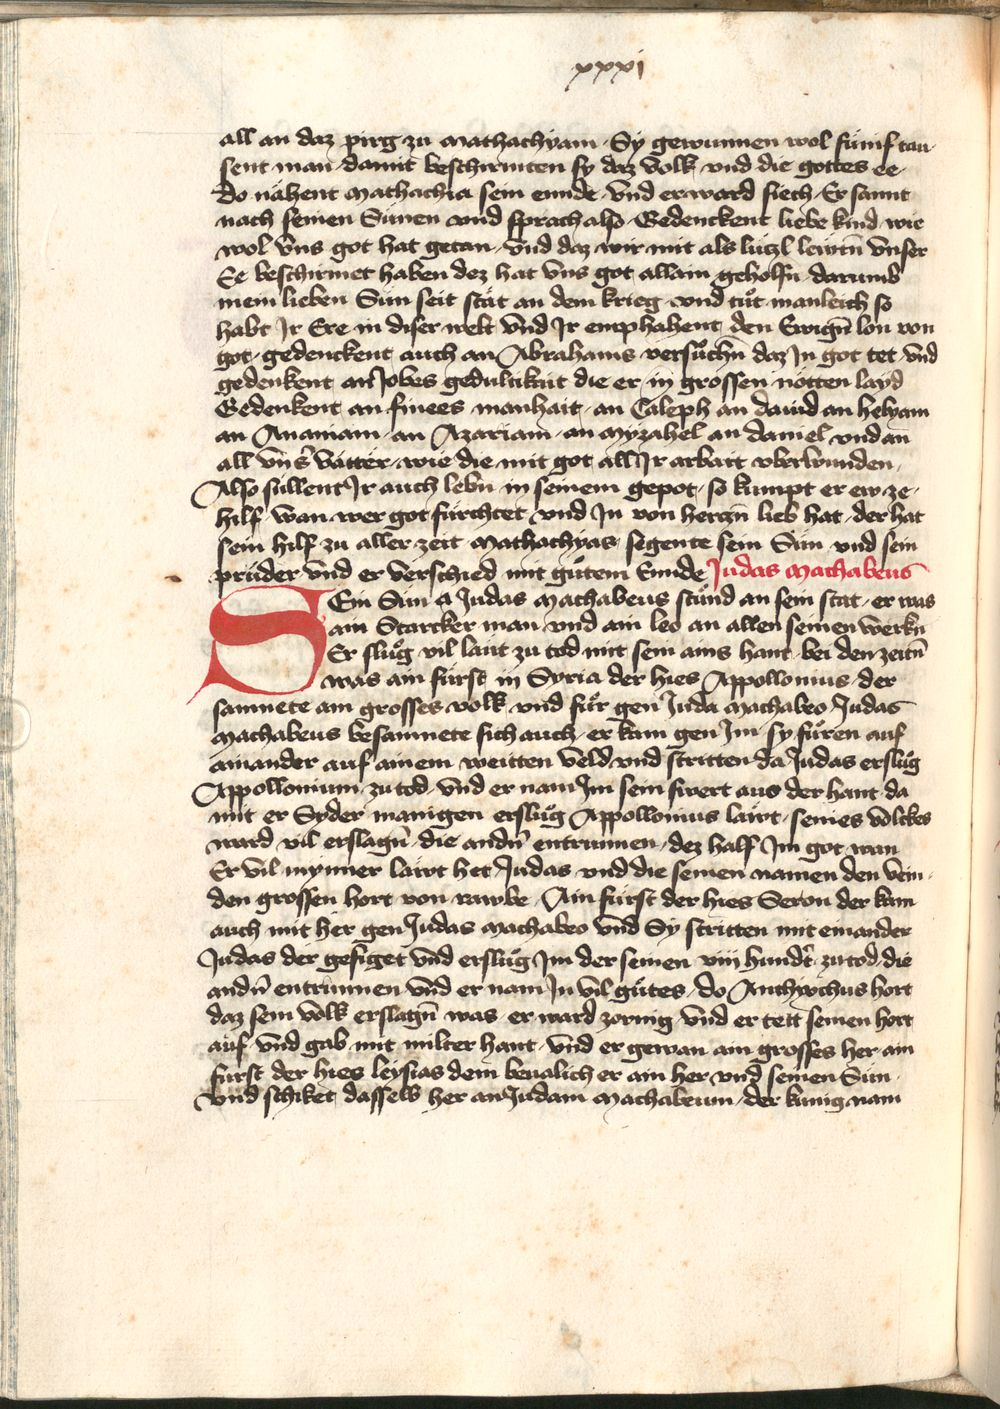 xxxi
all an daz pirg zu Mathachyam · Sy gewunnen wol fünif tau
sent man · damit beschirmten sy daz volk vnd die gottes ee ·
do nähent Mathachia sein ennde · vnd er ward siech · Er sannt
nach seinen Sünen vnd sprach also · Gedenckent liebe kind · wie
wol vns got hat getan · vnd daz wir mit als lützl lewtn̄ vnser
Ee beschirmet haben dez hat vns got allain geholfn̄ · darumb
mein lieben Sün seit stät an dem krieg vnd tůt manleich so
habt Jr Ere in diser welt vnd Jr emphahent den Ewign̄ lon von
got · gedenckent auch an Abrahams versůchn̄ daz Jn got tet · vnd
gedenkent an Jobes gedultikait die er in grossen nötten layd
Gedenkent an finees manhait · an Caleph an dauid an helyam
an Ananiam · an Azariam · an Myzahel an daniel vnd an
all vnser vätter · wie die mit got all Jr arbait vberwunden ·
Also süllent Jr auch lebn̄ in seinem gepot · so kumpt er ew ze ·
hilf · wan wer got fürchtet vnd Jn von herczn̄ lieb hat · der hat
sein hilf zu aller zeit · Mathachyas segente sein Sün vnd sein
prüder vnd er verschied mit gůtem Ennde Judas Machabeus
SEin Sun a Judas Machabeus stůnd an sein stat · er was
ain Starcker man vnd ain leo an allen seinen werkn̄
Er slůg vil läut zu tod mit sein ains hant · bei den zeitn̄
was ain fürst in Syria der hies Appollonius · der
samnete ain grosses volk vnd fůr gen Juda Machabeo Judas
Machabeus besamnete sich auch · er kam gen Jm · sy fůren auf
ainander auf ainem weitten veld vnd stritten da Judas erslůg
Appollonium zu tod · vnd er nam Jm sein swert aus der hant · da
mit er Syder manigen erslůg Appollonius läwt · seines volckes
ward vil erslagn̄ · die andn̄ entrunnen · dez half Jm got wan
Er vil mynner läwt het Judas · vnd die seinen namen den vein ·
den grossen hort von rawbe · Ain fürst der hies Seron der kam
auch mit her gen Judas Machabeo vnd Sy stritten mit einander
Judas der gesiget vnd erslůg Jm der seinen viij hundt̄ · zu tod · die
andn̄ entrunnen vnd er nam Jn vil gůtes · do Anthyochus hort
daz sein volk erslagn̄ was · er ward zornig · vnd er tett seinen hort
auf · vnd gab mit milter hant · vnd er gewan ain grosses her · ain
fürst der hies leysias dem beualich er ain her vnd seinen Sün ·
vnd schiket dasselb her an Judam Machabeum · der kunig nam